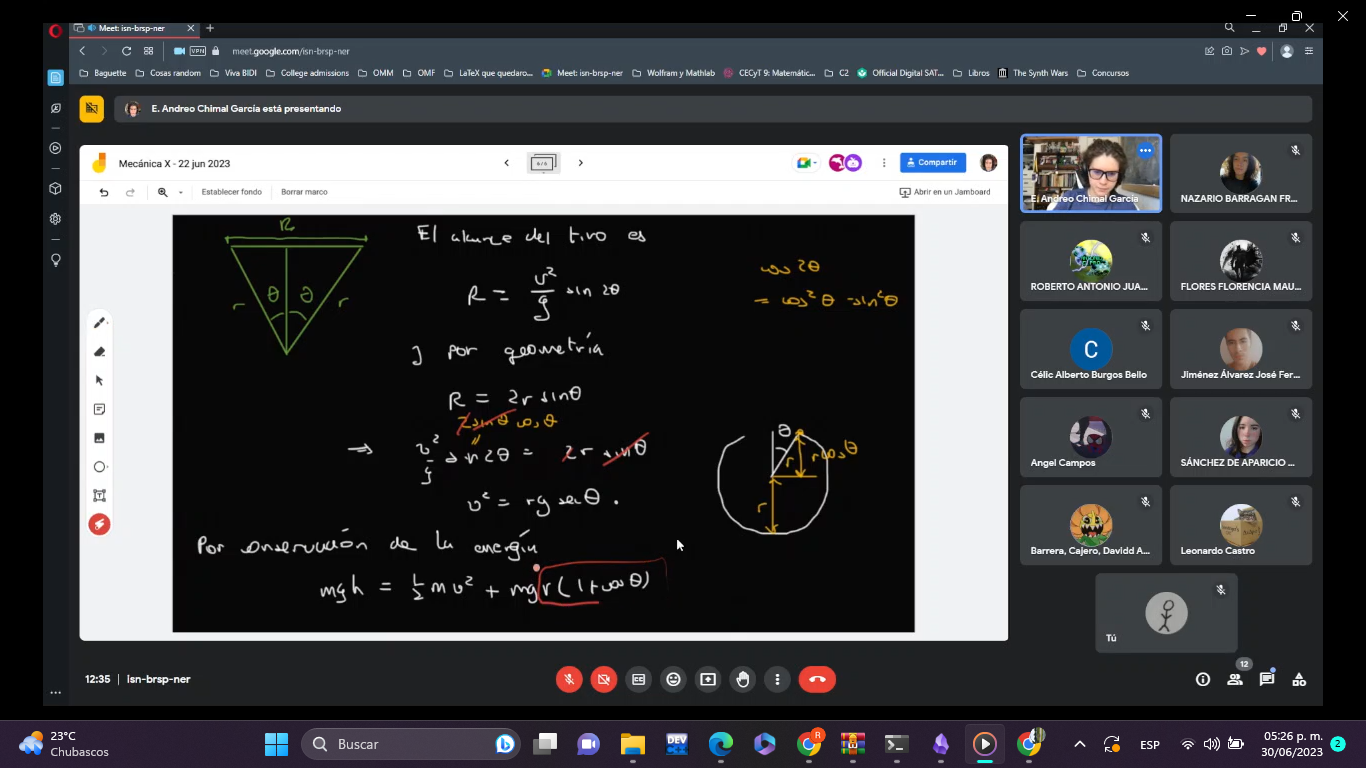 Meet: isn-brsp-ner
VPN
meet.google.com/isn-brsp-ner
Baguette
Cosas random
Viva BIDI
College admissions
OMM
OMF
LaTeX que quedaro...
Meet: isn-brsp-ner
Wolfram y Mathlab
CECyT 9: Matemátic...
C2
Official Digital SAT...
Libros
The Synth Wars
Concursos
E. Andreo Chimal García está presentando
Mecánica X - 22 jun 2023
6/6
Compartir
Establecer fondo
Borrar marco
Abrir en un Jamboard
R
θ θ
r r
El alcance del tiro es
R = v²/g sin 2θ
y por geometría
R = 2r sinθ
2 sinθ cosθ
⇒ v²/g sin 2θ = 2r sinθ
v² = rg secθ.
Por conservación de la energía
mgh = ½ m v² + mgr(1+cosθ)
cos 2θ
= cos²θ - sin²θ
θ
r
r cosθ
r
E. Andreo Chimal García
NAZARIO BARRAGAN FR...
ROBERTO ANTONIO JUA...
FLORES FLORENCIA MAU...
C
Célic Alberto Burgos Bello
Jiménez Álvarez José Fer...
Angel Campos
SÁNCHEZ DE APARICIO ...
Barrera, Cajero, Davidd A...
Leonardo Castro
Tú
12:35 | isn-brsp-ner
12
23°C
Chubascos
Buscar
DEV
R
ESP
05:26 p. m.
30/06/2023
2